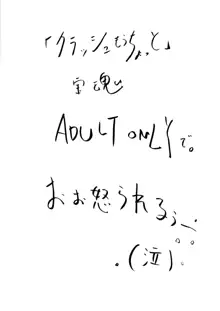 「クラッシュもうちょっと」
宝魂
ADULT ONLYで。
お怒られるぅ〜。。
.(泣)。